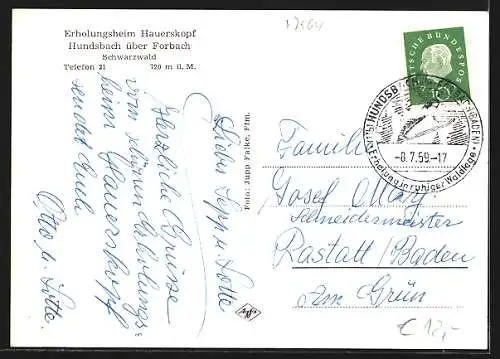 Erholungsheim Hauerskopf
Hundsbach über Forbach
Schwarzwald
Telefon 21 720 m ü. M.
Liebe Sepp u. Lotte
Herzliche Grüsse
vom schönen Erholungs-
heim Hauerskopf
sendet Euch
Otto u.
Foto: Jupp Falke, Ffm.
Agfa
17564
DEUTSCHE BUNDESPOST
10
HUNDSBACH (BADEN)
-8.7.59.-17
Erholung in ruhiger Waldlage
Familie
Josef
Schneidermeister
Rastatt/Baden
Am Grün
€ 12,-